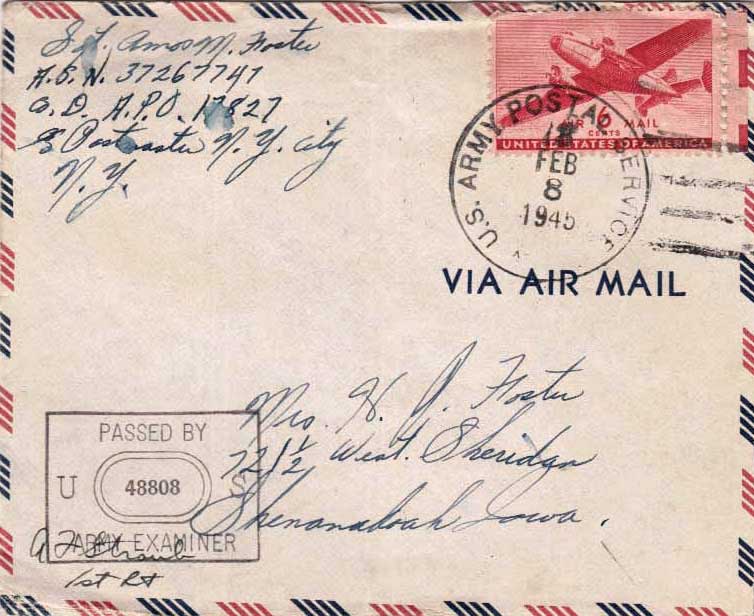 Sgt. Amos M. Foster
A.S.N. 37267747
C.D. A.P.O. 17827
% Postmaster N.Y. City
N.Y.
AIR 6 MAIL
CENTS
UNITED STATES OF AMERICA
U.S. ARMY POSTAL SERVICE
FEB
8
1945
VIA AIR MAIL
Mrs. H. J. Foster
721½ West. Sheridan
Shenandoah Iowa.
PASSED BY
U 48808 S
ARMY EXAMINER
1st Lt